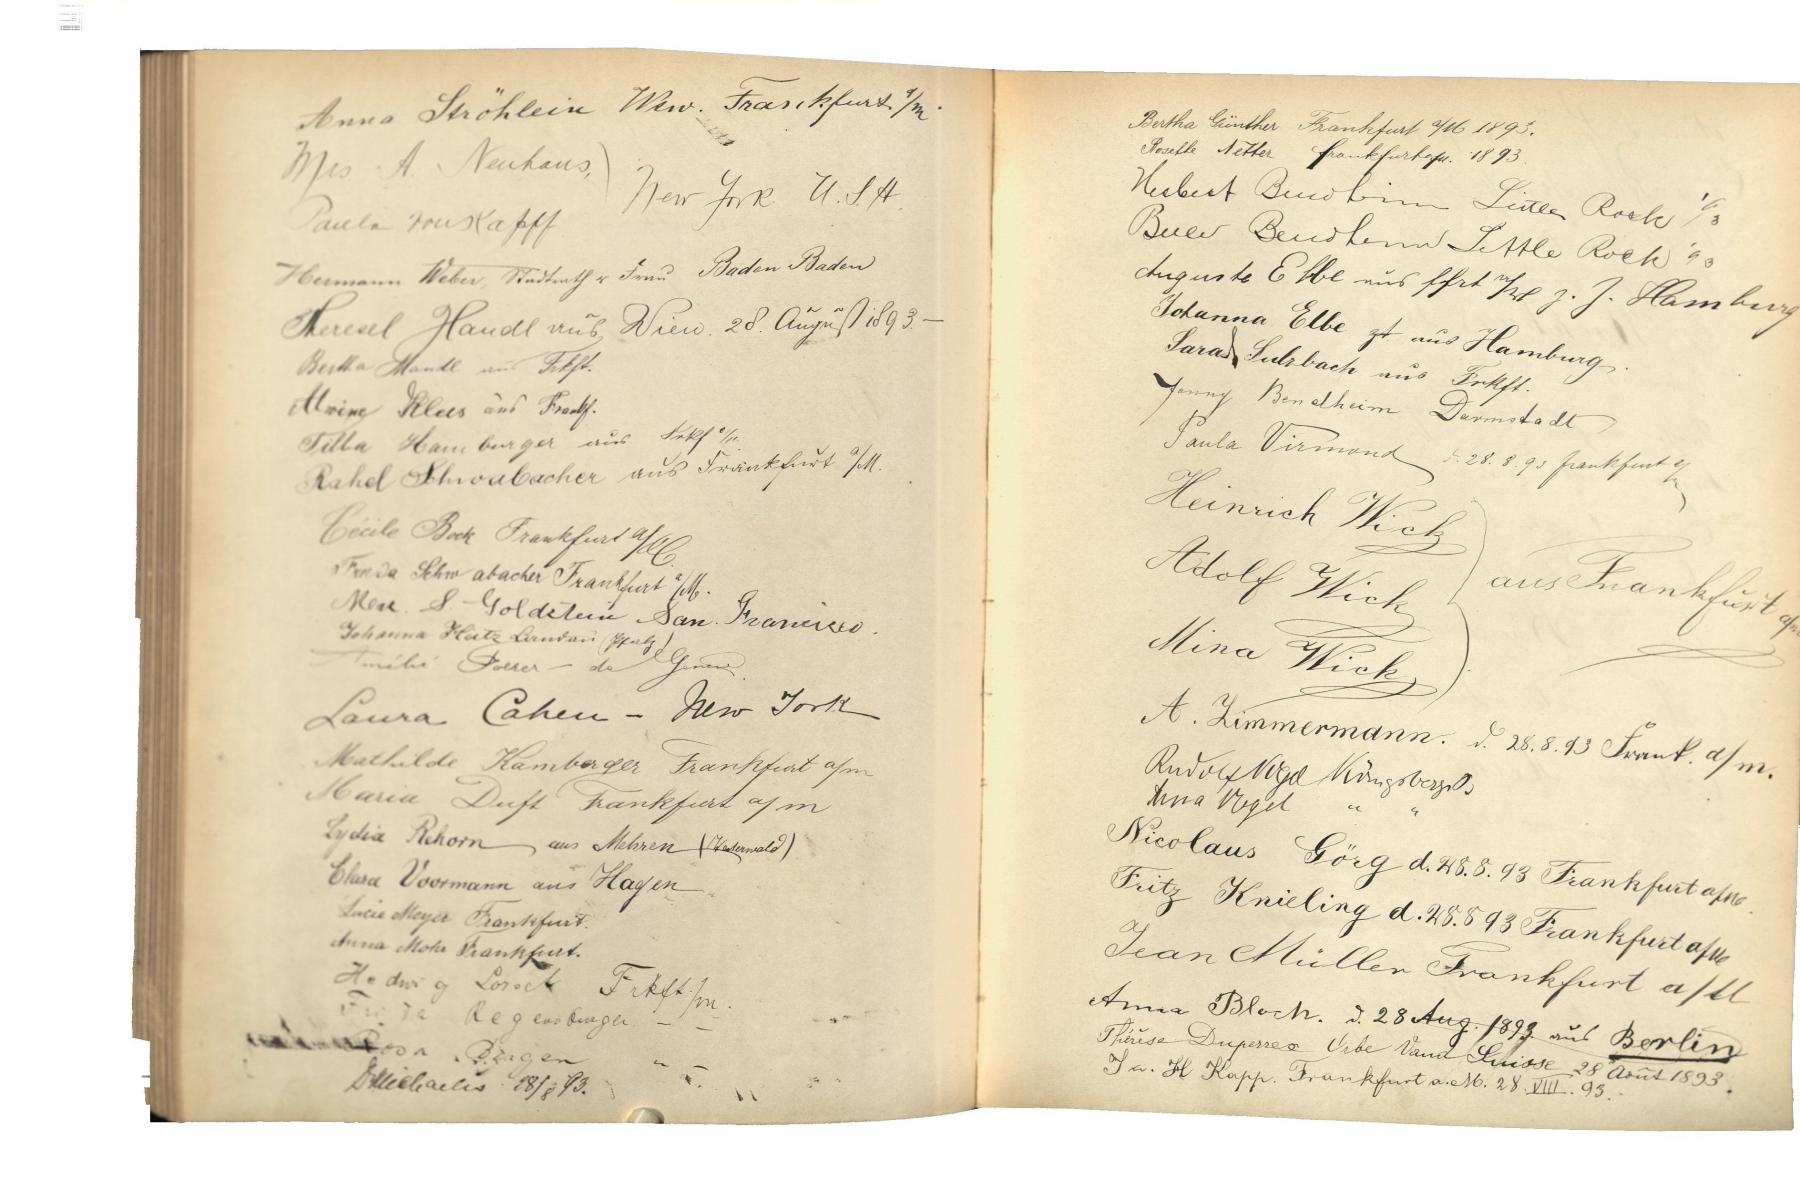 Anna Ströhlein Wwe. Frankfurt a/m.
Mrs A. Neuhaus,
New York U.S.A.
Paula
Hermann Weber, Stadtrath u Frau Baden Baden
Theresel Handl aus Wien. 28. August 1893.—
Bertha Mandl aus Frkft.
Alwine Klees aus Frankf.
Tilla Hamburger aus Frkf a/m.
Rahel Schwabacher aus Frankfurt a/M.
Cécile Bock Frankfurt a/M.
Frieda Schwabacher Frankfurt a/M.
S. Goldstein San. Francisco.
Johanna Landau (Pfalz)
de Genève
Laura Cahen – New York
Mathilde Hamberger Frankfurt a/m
Maria Duft Frankfurt a/m
Lydia Rehorn aus Mehren (Westerwald)
Clara Voormann aus Hagen
Lucie Meyer Frankfurt.
Anna Mohr Frankfurt.
Hedwig Frkft a/m.
Frida Regensburger – –
Rosa " –
Michaelis 28/8 93.
Bertha Günther Frankfurt a/M 1893.
Rosette Netter Frankfurt a/m. 1893
Herbert Bendheim Little Rock '93
Bendheim Little Rock '93
Auguste Elbe aus Ffrt a/M z. Z. Hamburg
Johanna Elbe zt aus Hamburg.
Sara Sulzbach aus Frkft.
Jenny Bendheim Darmstadt
Paula Virmond d. 28. 8. 93 Frankfurt a/
Heinrich Wick
Adolf Wick
aus Frankfurt a/m
Mina Wick
A. Zimmermann. d. 28. 8. 93 Frank. a/m.
Rudolf Vogel Königsberg
Anna Vogel " "
Nicolaus Görg d. 28. 8. 93 Frankfurt a/M.
Fritz Knieling d. 28. 8 93 Frankfurt a/M
Jean Müller Frankfurt a/M
Anna Bloch. d. 28 Aug. 1893 aus Berlin
Thérèse Duperrex Orbe Vaud Suisse 28 Août 1893.
J u. H Kapp. Frankfurt a. M. 28. VIII. 93.